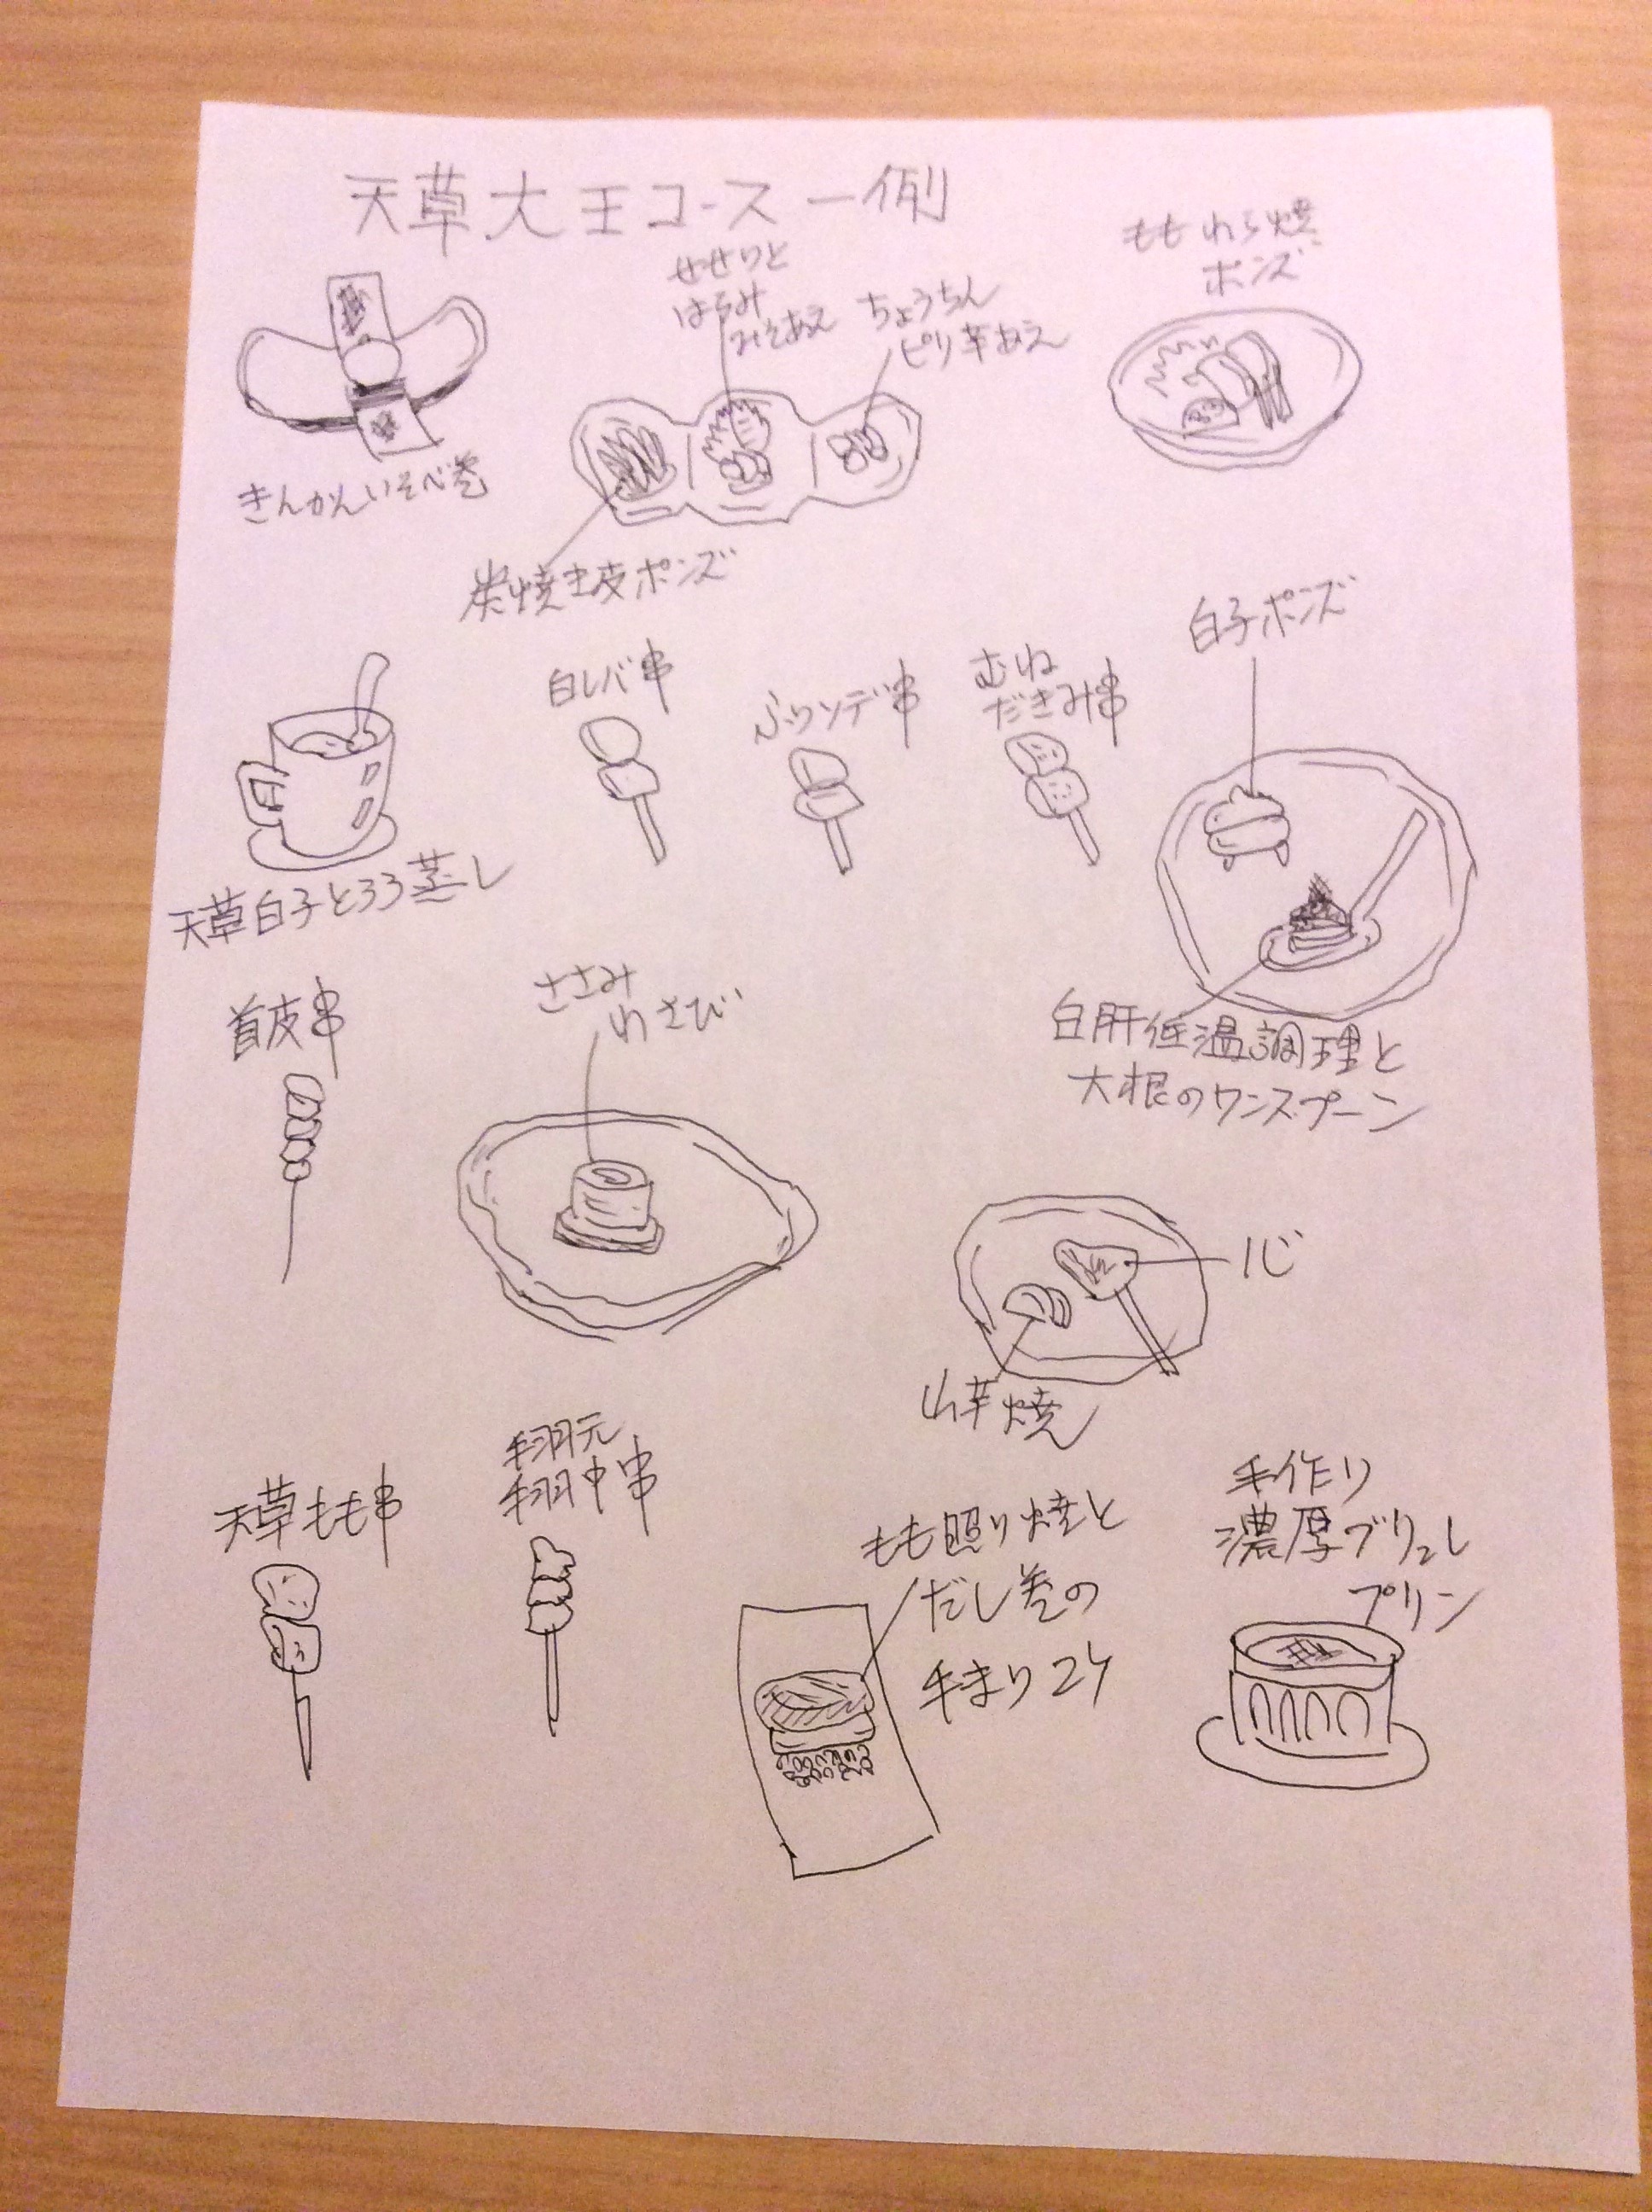 天草大王コース一例
きんかんいそべ巻
せせりと
はらみ
みそあえ
ちょうちん
ピリ辛あえ
炭焼き皮ポンズ
ももわら焼
ポンズ
天草白子とろろ蒸し
白レバ串
ふりソデ串
むね
だきみ串
白子ポンズ
白肝低温調理と
大根のワンスプーン
首皮串
ささみ
わさび
心
山芋焼
天草もも串
手羽元
手羽中串
もも照り焼と
だし巻の
手まりコケ
手作り
濃厚ブリュレ
プリン